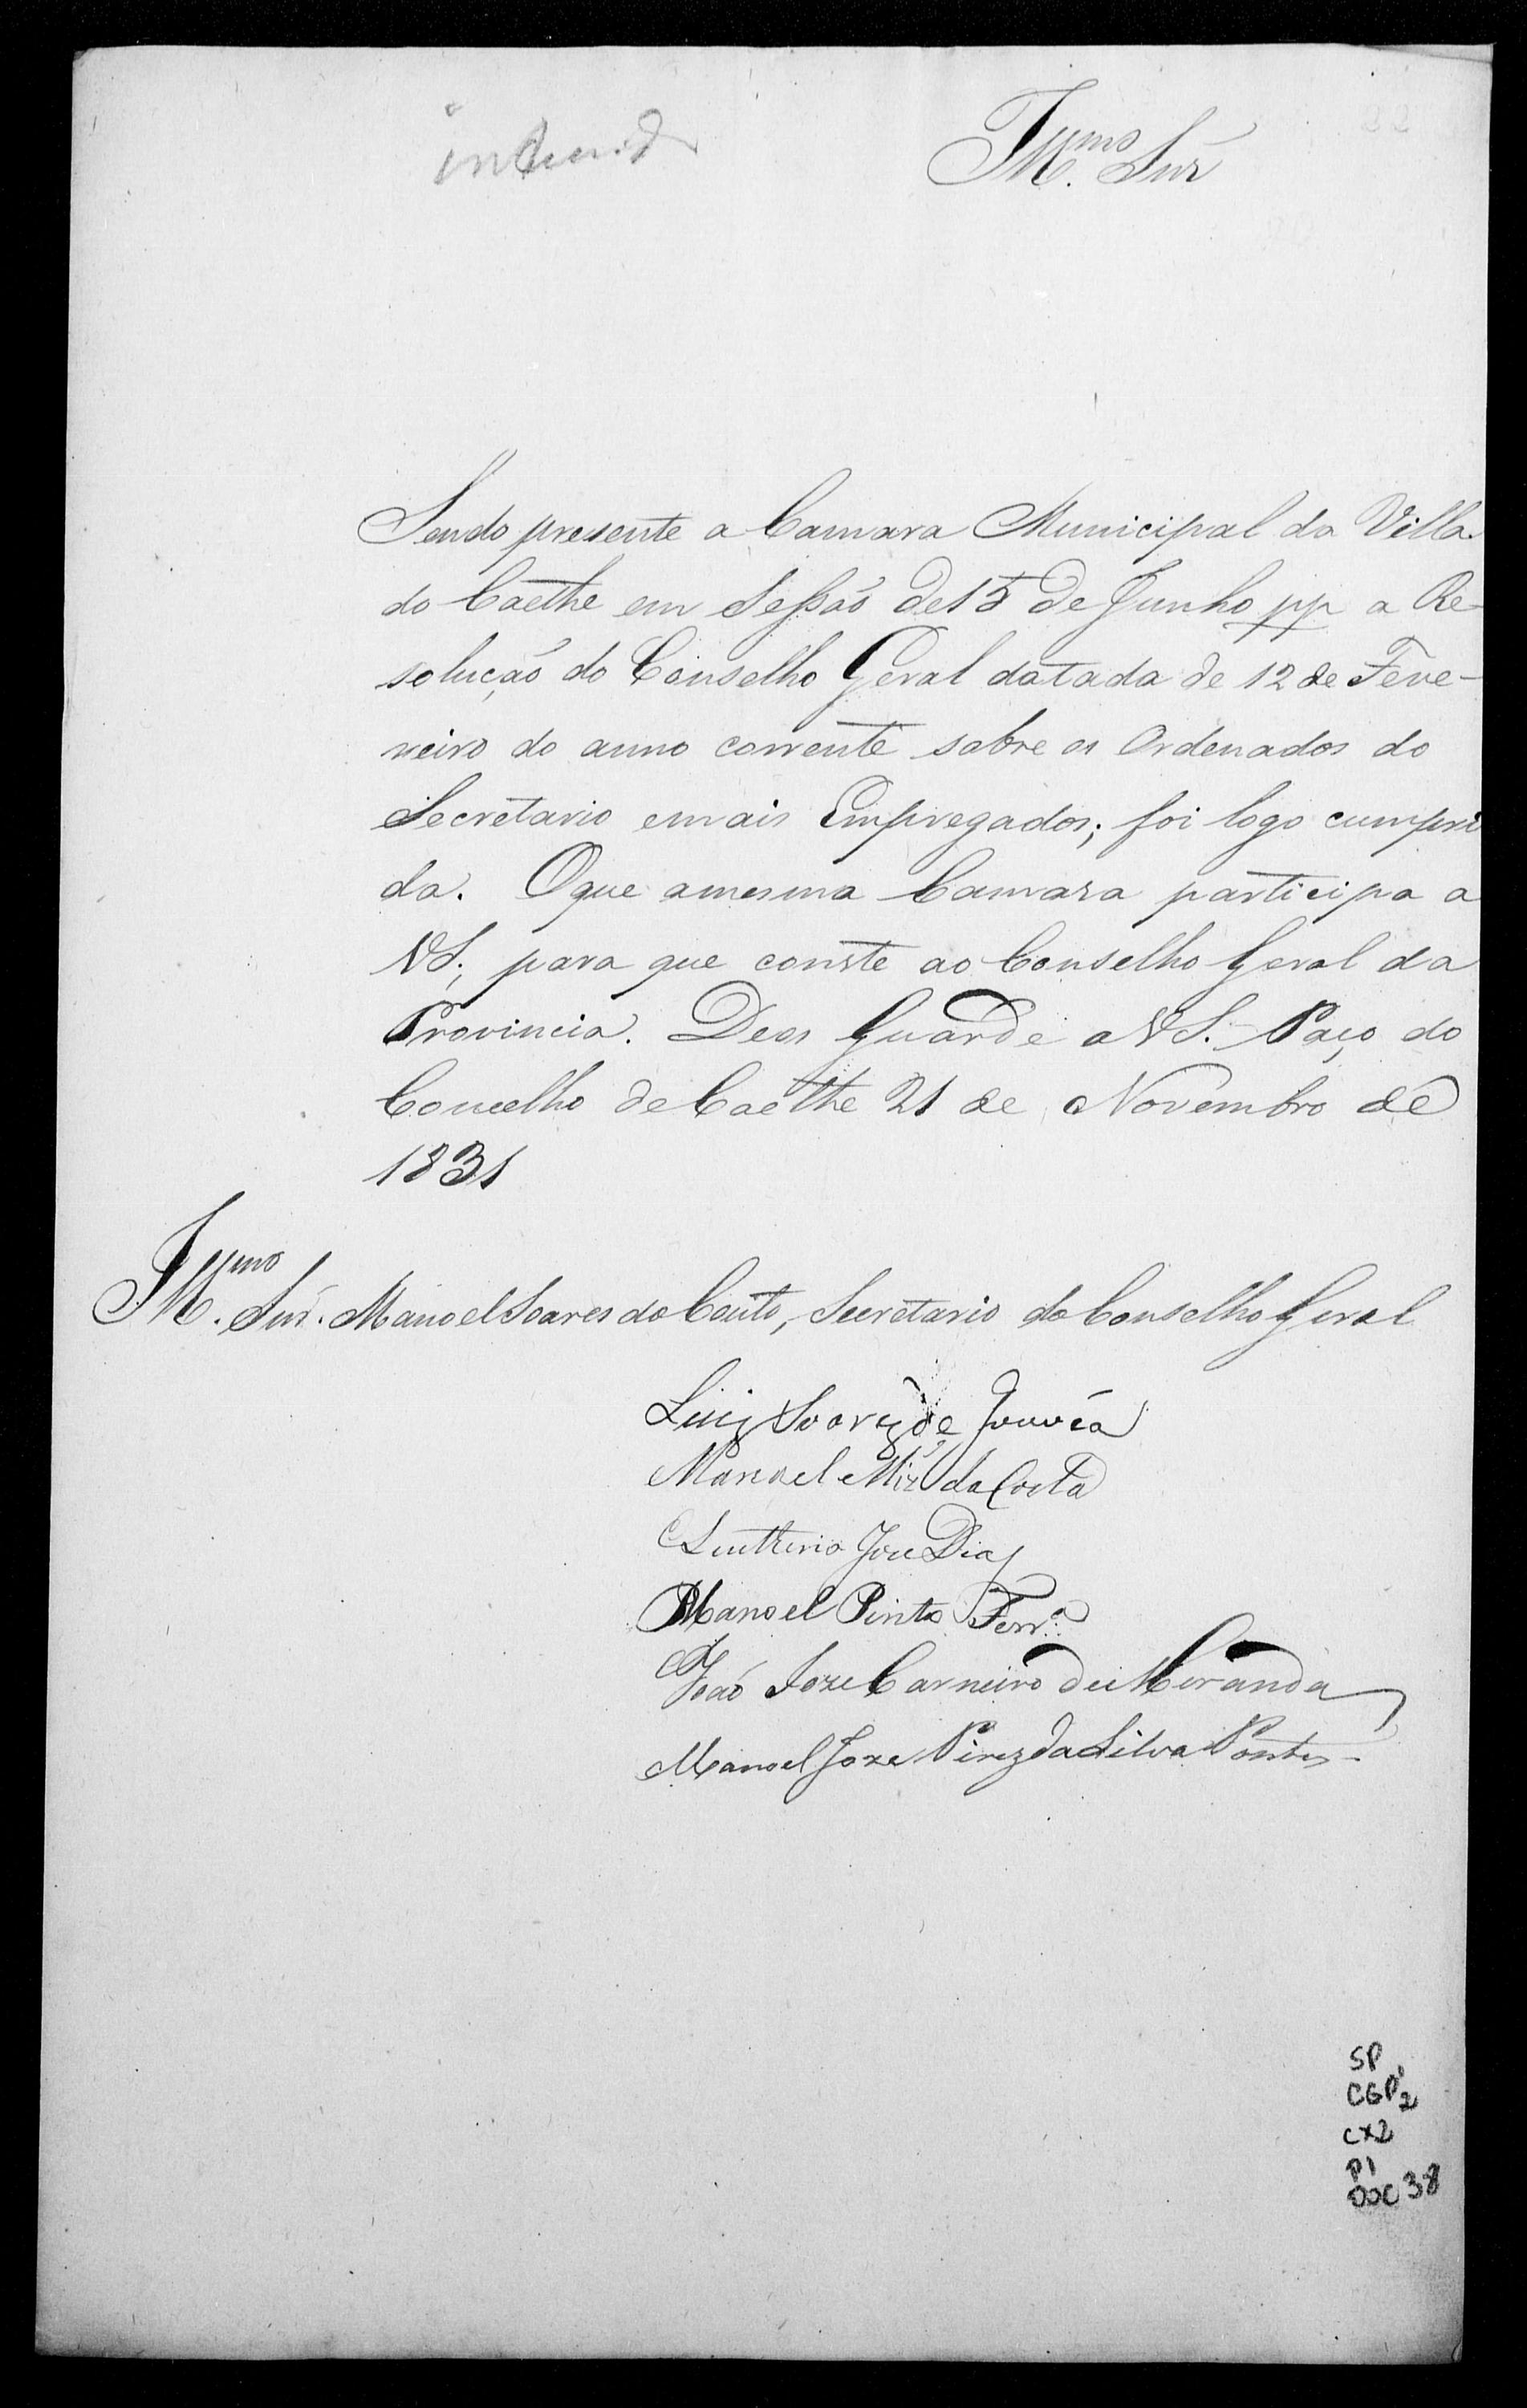 Illmo. Snr
Sendo presente a Camara Municipal da Villa
do Caethe em Sessão de 15 de Junho pp a Re-
solução do Conselho Geral datada de 12 de Feve-
reiro do anno corrente sobre os Ordenados do
Secretario emais Empregados; foi logo cumpri
da. Oque amesma Camara participa a
VS., para que conste ao Conselho Geral da
Provincia. Deos Guarde a VS. Paço do
Concelho de Caethe 21 de Novembro de
1831
Illmo. Snr. Manoel Soares do Couto, Secretario do Conselho Geral
Luiz Soares de Gouvêa
Manoel Miz da Costa
Leutherio Joze Dias
Manoel Pinto Ferra.
João Joze Carneiro de Miranda
Manoel Joze Pirez da Silva Pontes
SP
CGP2
CX2
P1
DOC 38